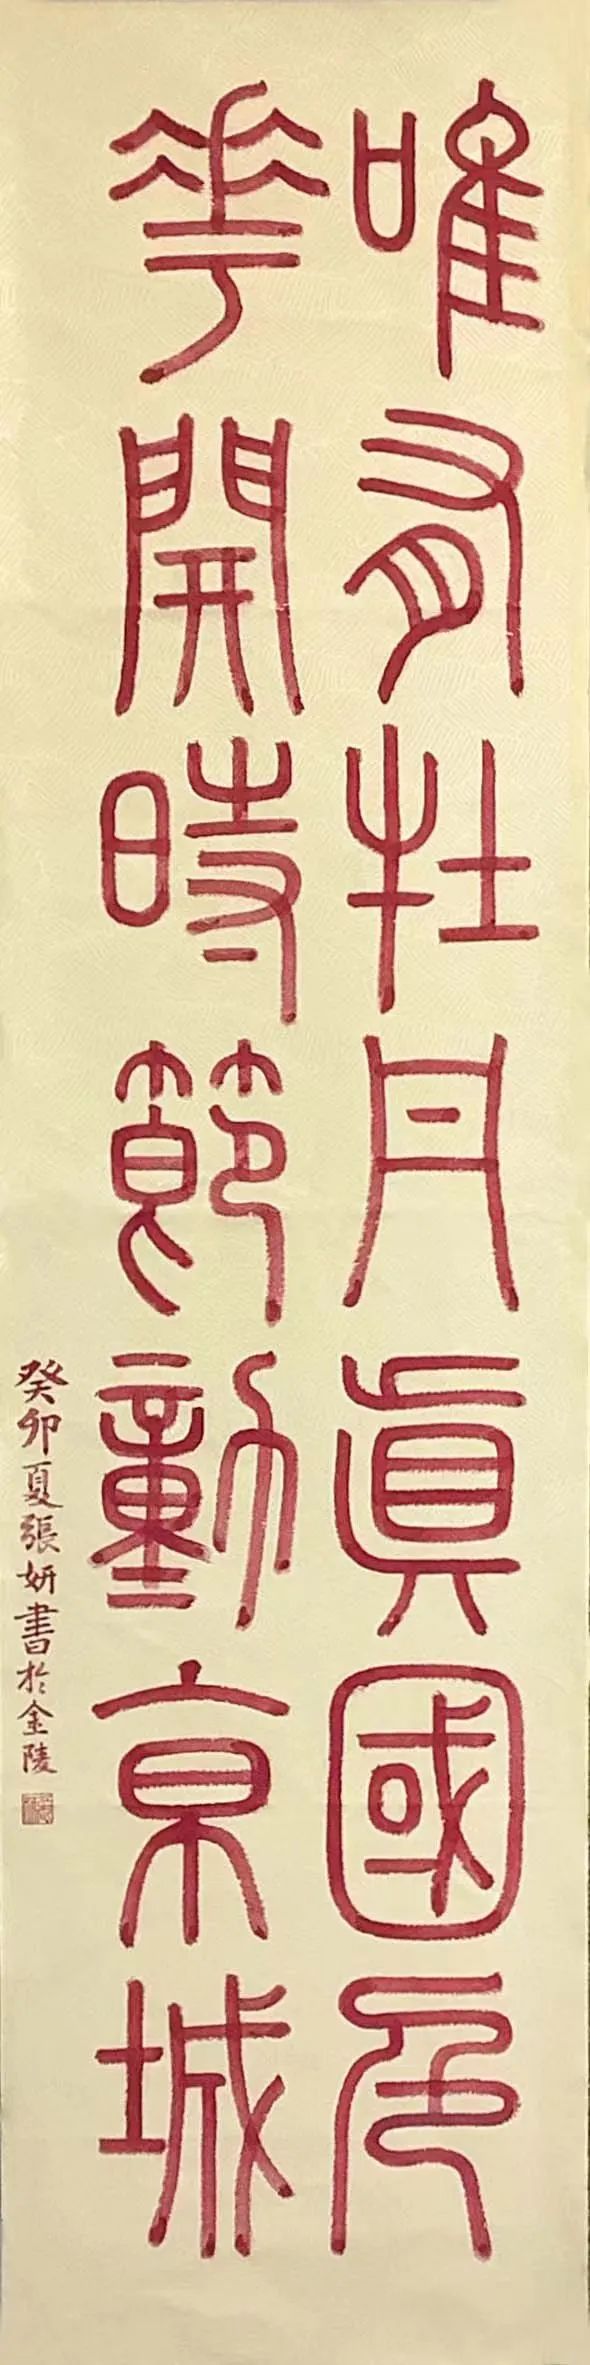 唯有牡丹真國色
華開時節動京城
癸卯夏張妍書於金陵